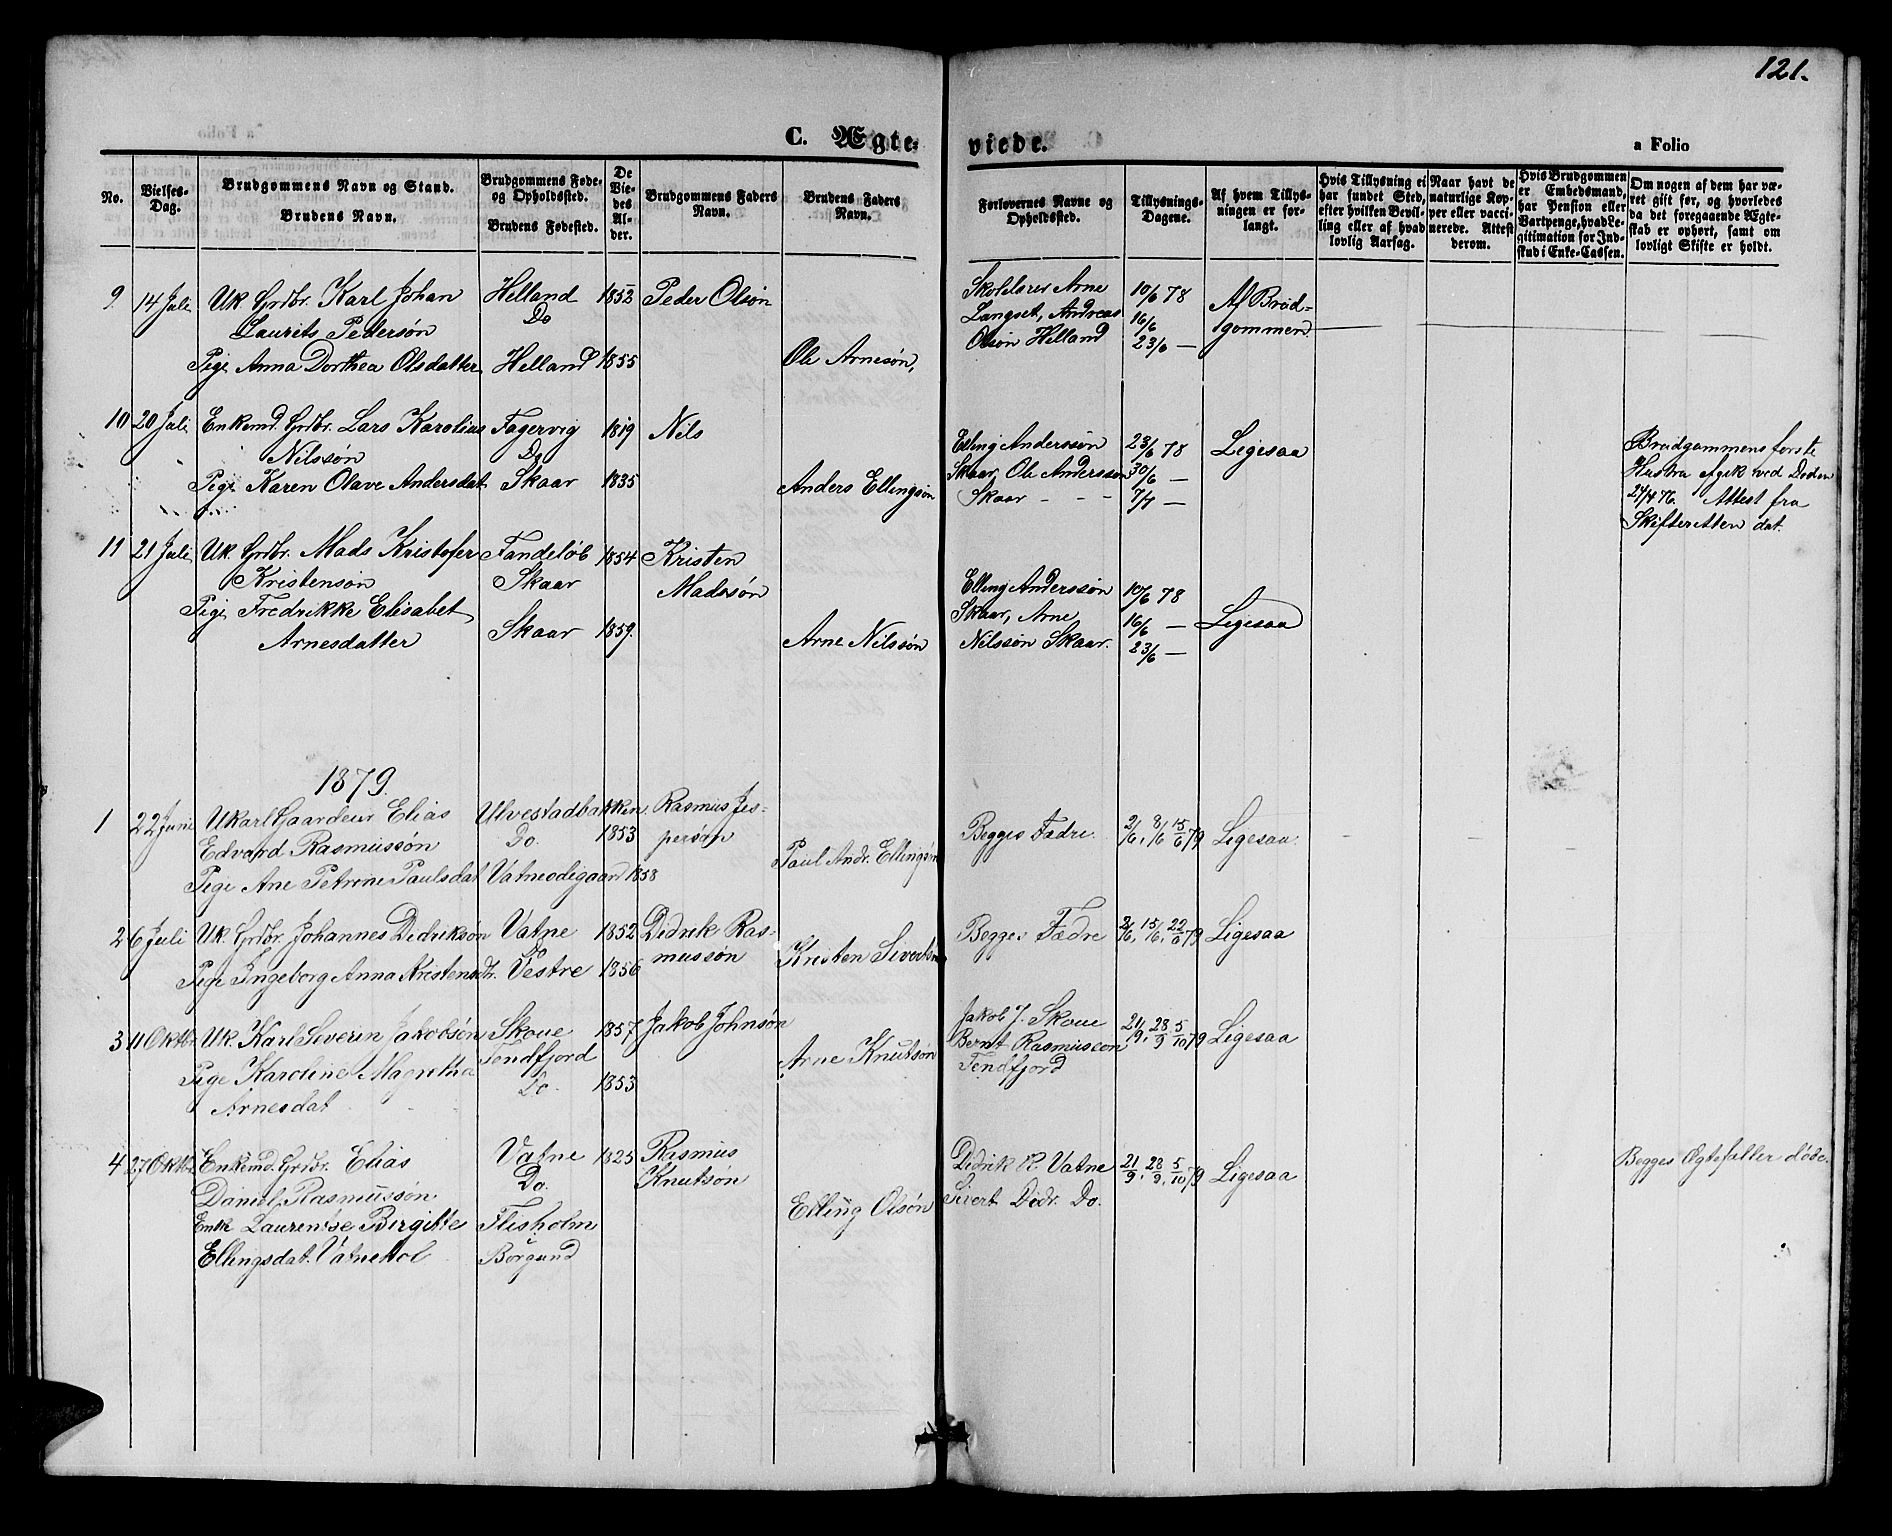 121.
C. Ægteviede.
a Folio
No.
Vielses-Dag.
Brudgommens Navn og Stand.
Brudens Navn.
Brudgommens Føde- og Opholdssted.
Brudens Fødested.
De Viedes Alder.
Brudgommens Faders Navn.
Brudens Faders Navn.
Forlovernes Navne og Opholdssted.
Tillysnings-Dagene.
Af hvem Tillysningen er forlangt.
Hvis Tillysning ei har fundet Sted, efter hvilken Bevilling eller af hvad lovlig Aarsag.
Naar havt de naturlige Kopper eller vaccinerede. Attest derom.
Hvis Brudgommen er Embedsmand, har Pension eller Vartpenge, hvad Legitimation for Indskud i Enke-Cassen.
Om nogen af dem har været gift før, og hvorledes da det foregaaende Ægteskab er ophørt, samt om lovligt Skifte er holdt.
9 14 Juli Uk. Grdbr. Karl Johan Helland 1852 Peder Olsøn Skolelærer Arne 10/6 78 Af Brud-
Laurits Pedersøn Do Langset, Andreas 16/6 gommen
Pige Anna Dorthea Olsdatter Helland 1855 Ole Arnesøn, Olsøn Helland 23/6 —
10 20 Juli Enkemd. Grdbr. Lars Karolius Fagervig 1819 Nils Elling Anderssøn 23/6 78 Ligesaa Brudgommens første
Nilssøn Do Skaar, Ole Anderssøn 30/6 — Hustru Afgik ved Døden
Pige Karen Olave Andersdat Skaar 1835 Anders Ellingsøn Skaar - - - 7/7 — 24/4 76. Attest fra
Skifteretten dat.
11 21 Juli Uk. Grdbr. Mads Kristofer Tandeløb 1854 Kristen Elling Anderssøn 10/6 78
Kristensøn Skaar Madssøn Skaar, Arne 16/6 — Ligesaa
Pige Fredrikke Elisabet Skaar 1859. Arne Nilssøn Nilssøn Skaar. 23/6 —
Arnesdatter
1879.
1 22 Juni Ukarl Gaardeier Elias Ulvestadbakken Rasmus Jes- Begges Fædre. 2/6, 8/6 15/6 79 Ligesaa.
Edvard Rasmussøn Do. 1853 persøn
Pige Ane Petrine Paulsdat Vatneødigaard 1858 Paul Andr. Ellingsøn
2 6 Juli Uk. Grdbr. Johannes Didriksøn Vatne 1852 Didrik Ras- Begges Fædre 15/6, 22/6 79 Ligesaa
mussøn
Pige Ingeborg Anna Kristensdt. Vestre 1856 Kristen Sivertsøn
3 11 Oktbr Uk. Karl Severin Jakobsøn Skoue 1857 Jakob Johnsøn Jakob J. Skoue 21/9, 28/9 5/10 79 Ligesaa
Pige Karoline Magretha Tendfjord Arne Knutsøn Bernt Rasmussøn
Arnesdat Do. 1853 Tendfjord
4 27 Oktbr Enkemd. Grdbr. Elias Vatne 1825 Rasmus Didrik R. Vatne 21/9, 28/9, 5/10 79 Ligesaa Begges Ægtefæller døde.
Daniel Rasmussøn Do. Knutsøn Sivert Didr. Do.
Enke Laurentse Birgitte Flisholm Elling Olsøn
Ellingsdat. Vatnehol Borgund